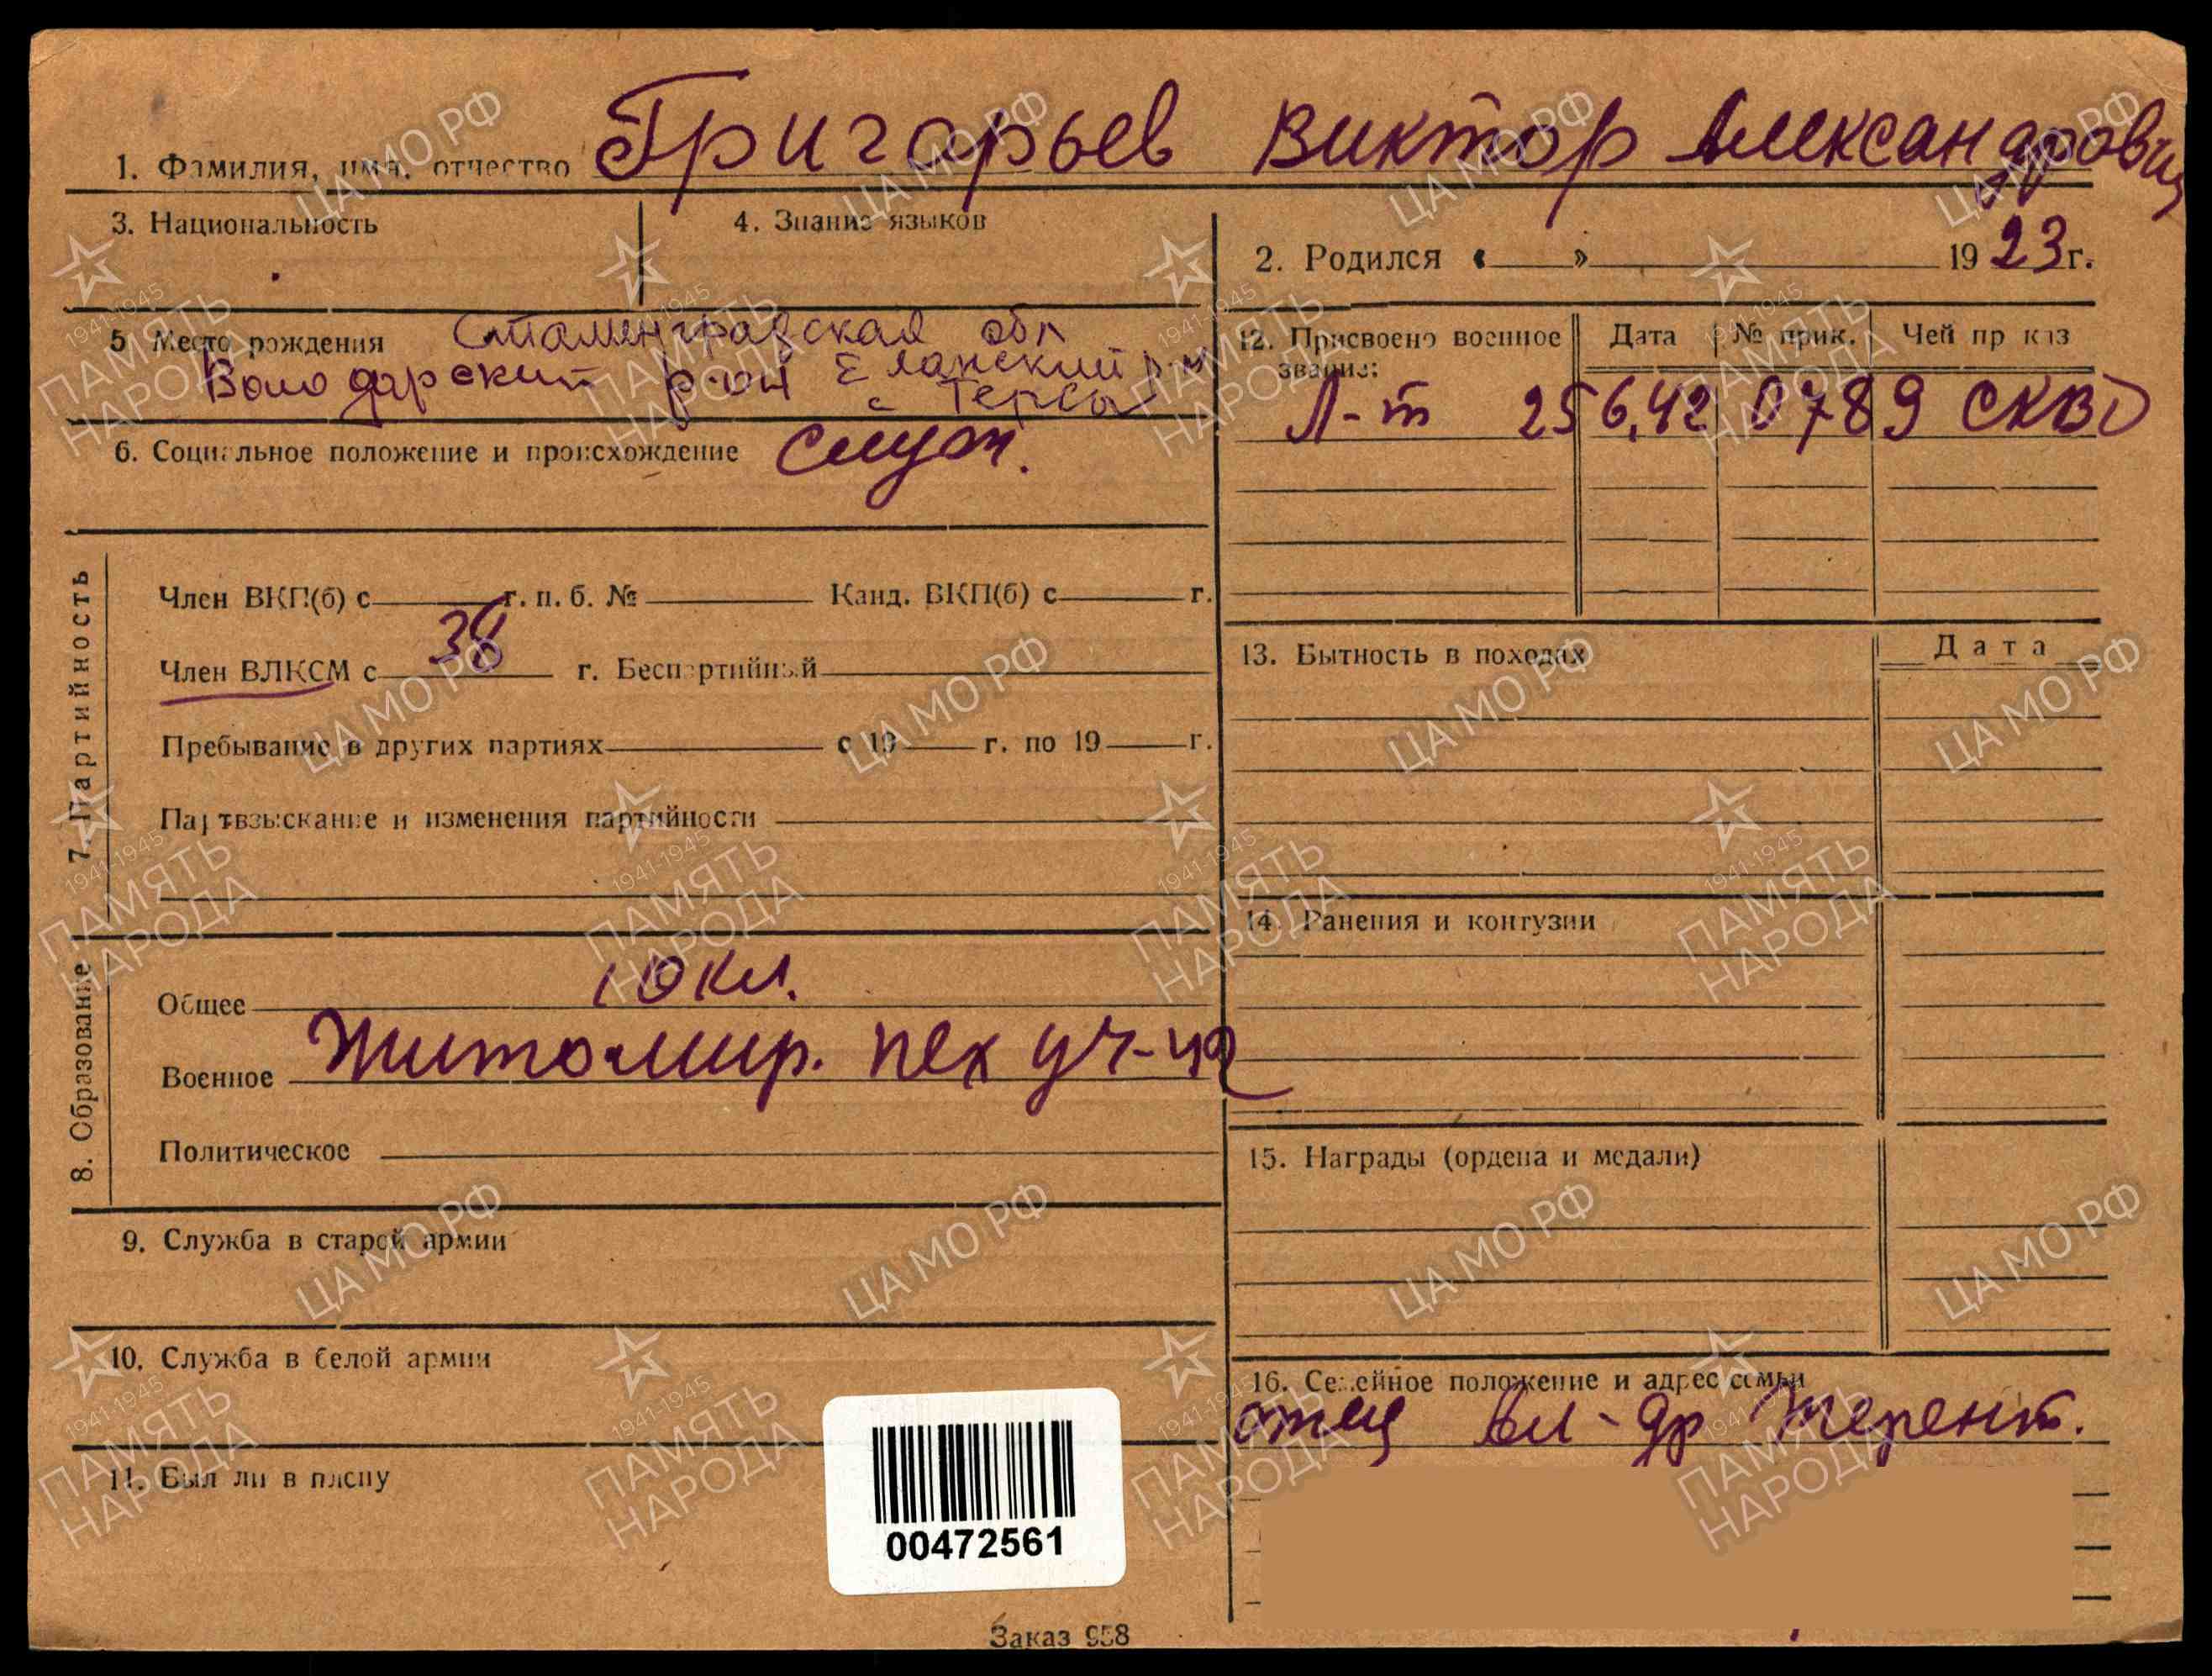 1. Фамилия, имя, отчество Григорьев Виктор Александрович
3. Национальность
4. Знание языков
2. Родился « » 1923г.
5 Место рождения Сталинградская обл
Володарский р-он Еланский р-н
с Терсы
6. Социальное положение и происхождение служ.
7. Партийность
Член ВКП(б) с г. п. б. № Канд. ВКП(б) с г.
Член ВЛКСМ с 38 г. Беспартийный
Пребывание в других партиях с 19 г. по 19 г.
Партвзыскание и изменения партийности
8. Образование
Общее 10 кл.
Военное Житомир. пех уч-ще
Политическое
9. Служба в старой армии
10. Служба в белой армии
11. Был ли в плену
12. Присвоено военное звание: Дата № прик. Чей приказ
Л-т 25 6,42 0789 СКВО
13. Бытность в походах Дата
14. Ранения и контузии
15. Награды (ордена и медали)
16. Семейное положение и адрес семьи
отец Ал-др Терент.
00472561
Заказ 958
ЦА МО РФ
1941-1945
ПАМЯТЬ
НАРОДА